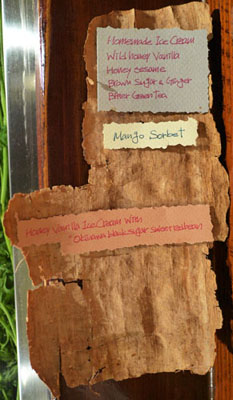 Homemade Ice Cream
Wild honey Vanilla
Honey sesame
Brown Sugar & Ginger
Bitter Green Tea
Mango Sorbet
Honey Vanilla Ice Cream with
"Okinawa black sugar sweet redbean"